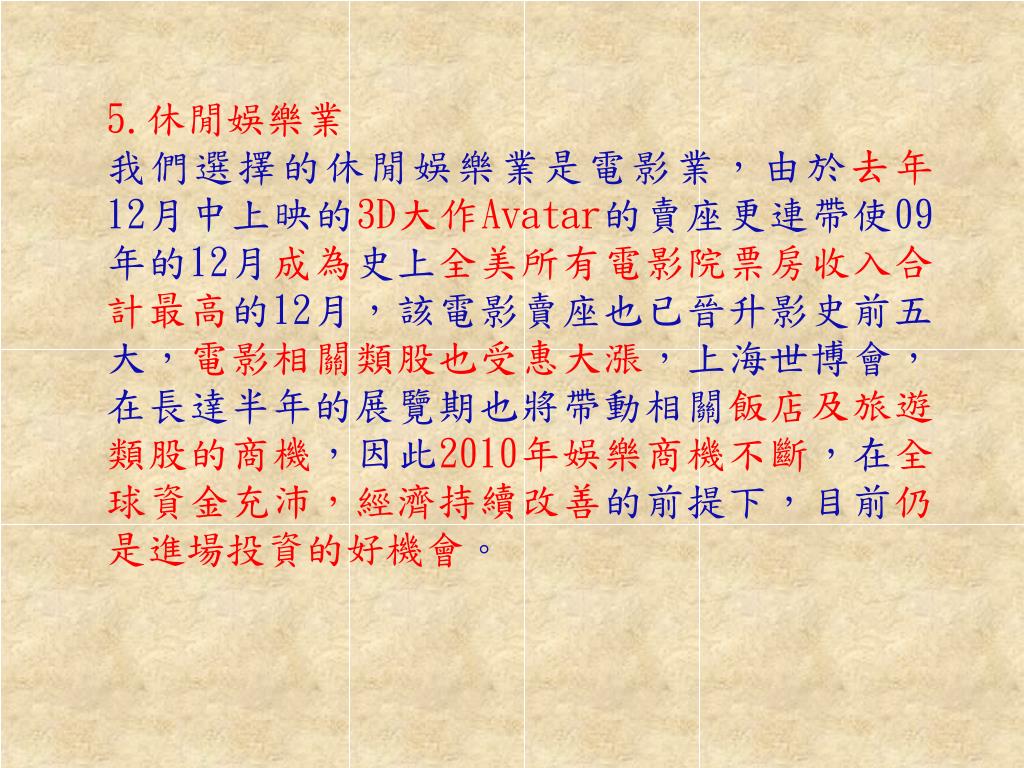 5.休閒娛樂業
我們選擇的休閒娛樂業是電影業，由於去年
12月中上映的3D大作Avatar的賣座更連帶使09
年的12月成為史上全美所有電影院票房收入合
計最高的12月，該電影賣座也已晉升影史前五
大，電影相關類股也受惠大漲，上海世博會，
在長達半年的展覽期也將帶動相關飯店及旅遊
類股的商機，因此2010年娛樂商機不斷，在全
球資金充沛，經濟持續改善的前提下，目前仍
是進場投資的好機會。